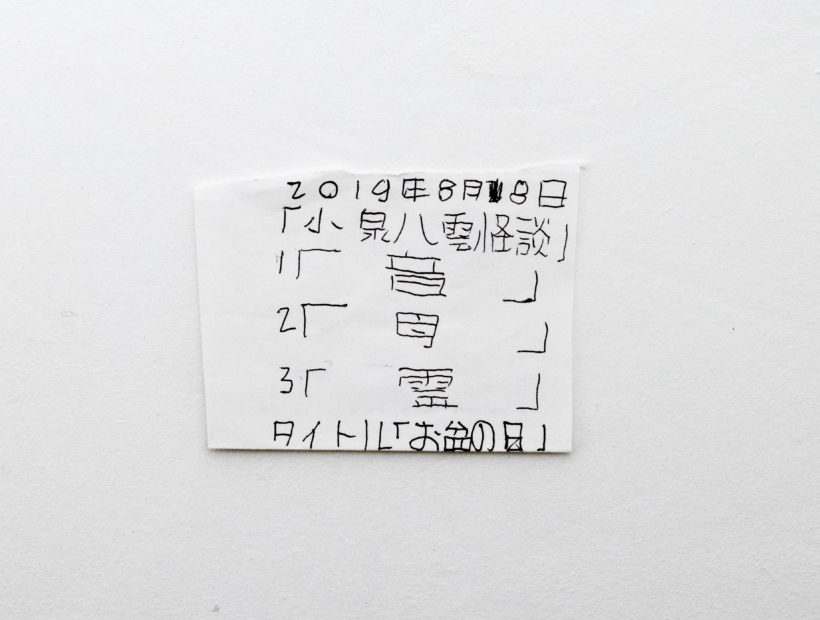 2019年8月18日
「小泉八雲怪談」
1「 音 」
2「 」
3「 霊 」
タイトル「お盆の日」